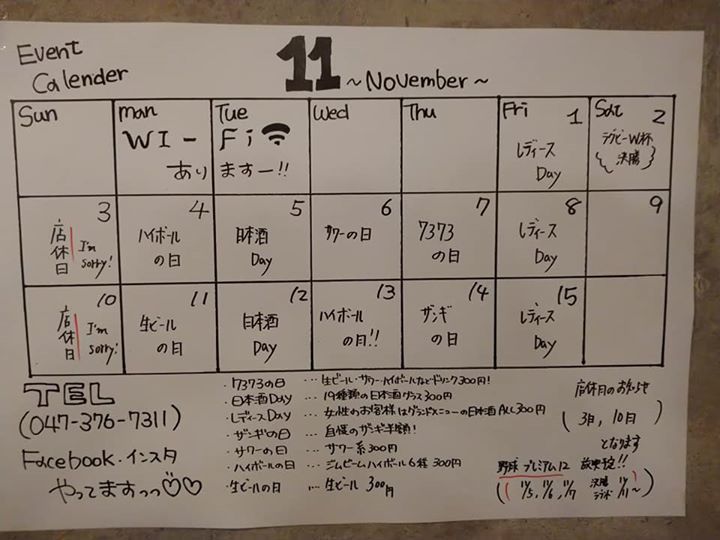 Event
Calender
11 ~November~
Sun man Tue Wed Thu Fri Sat
WI-Fi
ありますー!!
1
レディース
Day
2
ラグビーW杯
決勝
3
店休日
I'm
sorry!
4
ハイボール
の日
5
日本酒
Day
6
サワーの日
7
7373
の日
8
レディース
Day
9
10
店休日
I'm
sorry!
11
生ビール
の日
12
日本酒
Day
13
ハイボール
の日!!
14
ザンギ
の日
15
レディース
Day
TEL
(047-376-7311)
Facebook・インスタ
やってますっっ♡♡
・7373の日 …生ビール・サワー・ハイボールなどドリンク300円!
・日本酒Day …19種類の日本酒グラス300円
・レディースDay …女性のお客様はグランドメニューの日本酒ALL300円
・ザンギの日 …自慢のザンギ半額!
・サワーの日 …サワー系300円
・ハイボールの日 …ジムビームハイボール6種 300円
・生ビールの日 …生ビール 300円
店休日のお知らせ
(3日,10日)
となります
野球 プレミアム12 放映予定!!
11/5, 11/6, 11/7 決勝 11/11~